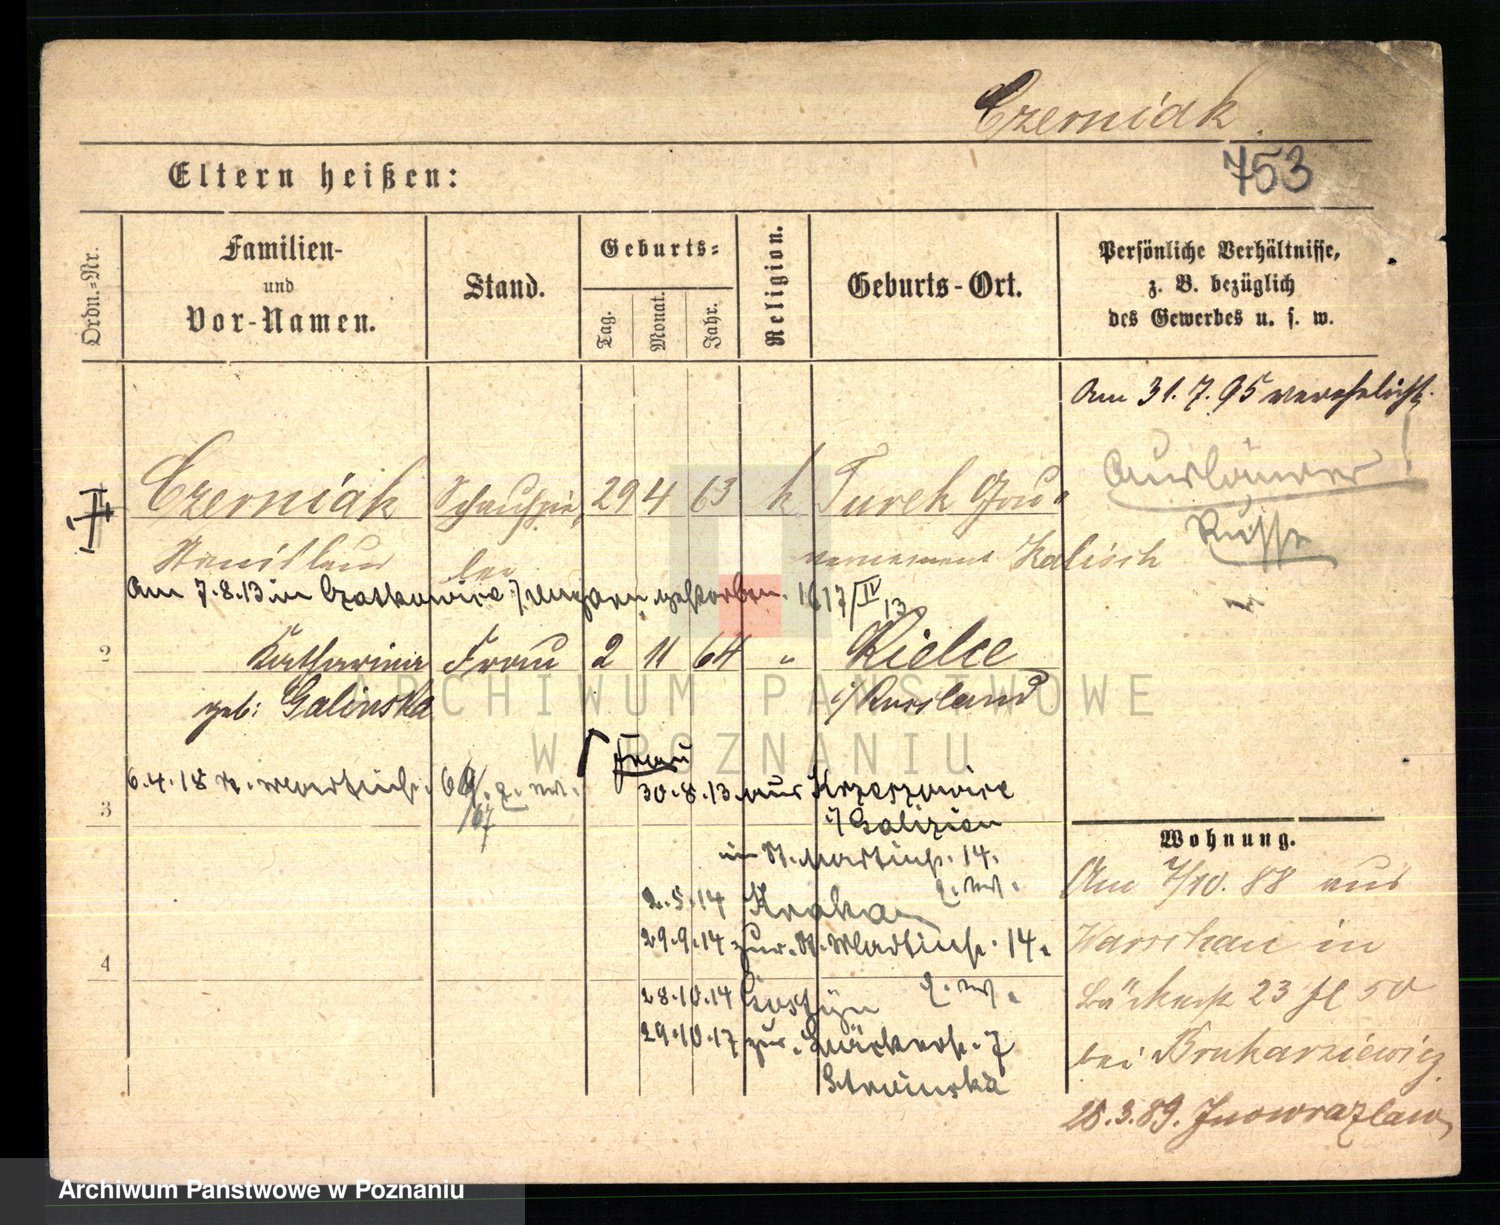 Czerniak
753
Eltern heißen:
Ordn.=Nr.
Familien-
und
Vor-Namen.
Stand.
Geburts=
Tag.
Monat.
Jahr.
Religion.
Geburts-Ort.
Persönliche Verhältnisse,
z. B. bezüglich
des Gewerbes u. s. w.
Am 31.7.95 verehelicht.
Ausländer!
Russe
Czerniak Schauspie 29 4 63 k. Turek Gou
Stanislaus ler vernement Kalisch
Am 7.8.13 in Czatkowice i/ Ungarn gestorben. 1617/IV 13
2 Katharina Frau 2 11 64 " Kielce
geb: Galinska i/ Russland
Frau
6.4.18 St. Martinstr. 69/67 q. w.
30.8.13 aus Krzeszowice
i/ Galizien
in St. Martinstr. 14.
q. w.
3
2.5.14 Krakau
29.9.14 zur. St. Martinstr. 14.
q. w.
4
28.10.14 Gostyn
29.10.17 zur. Bäckerstr. 7
Strainska
Wohnung.
Am 7/10. 88 aus
Warschau in
Bäckerstr 23 H 50
bei Brukarziewicz
28.3.89. Inowrazlaw
ARCHIWUM PAŃSTWOWE
W POZNANIU
Archiwum Państwowe w Poznaniu